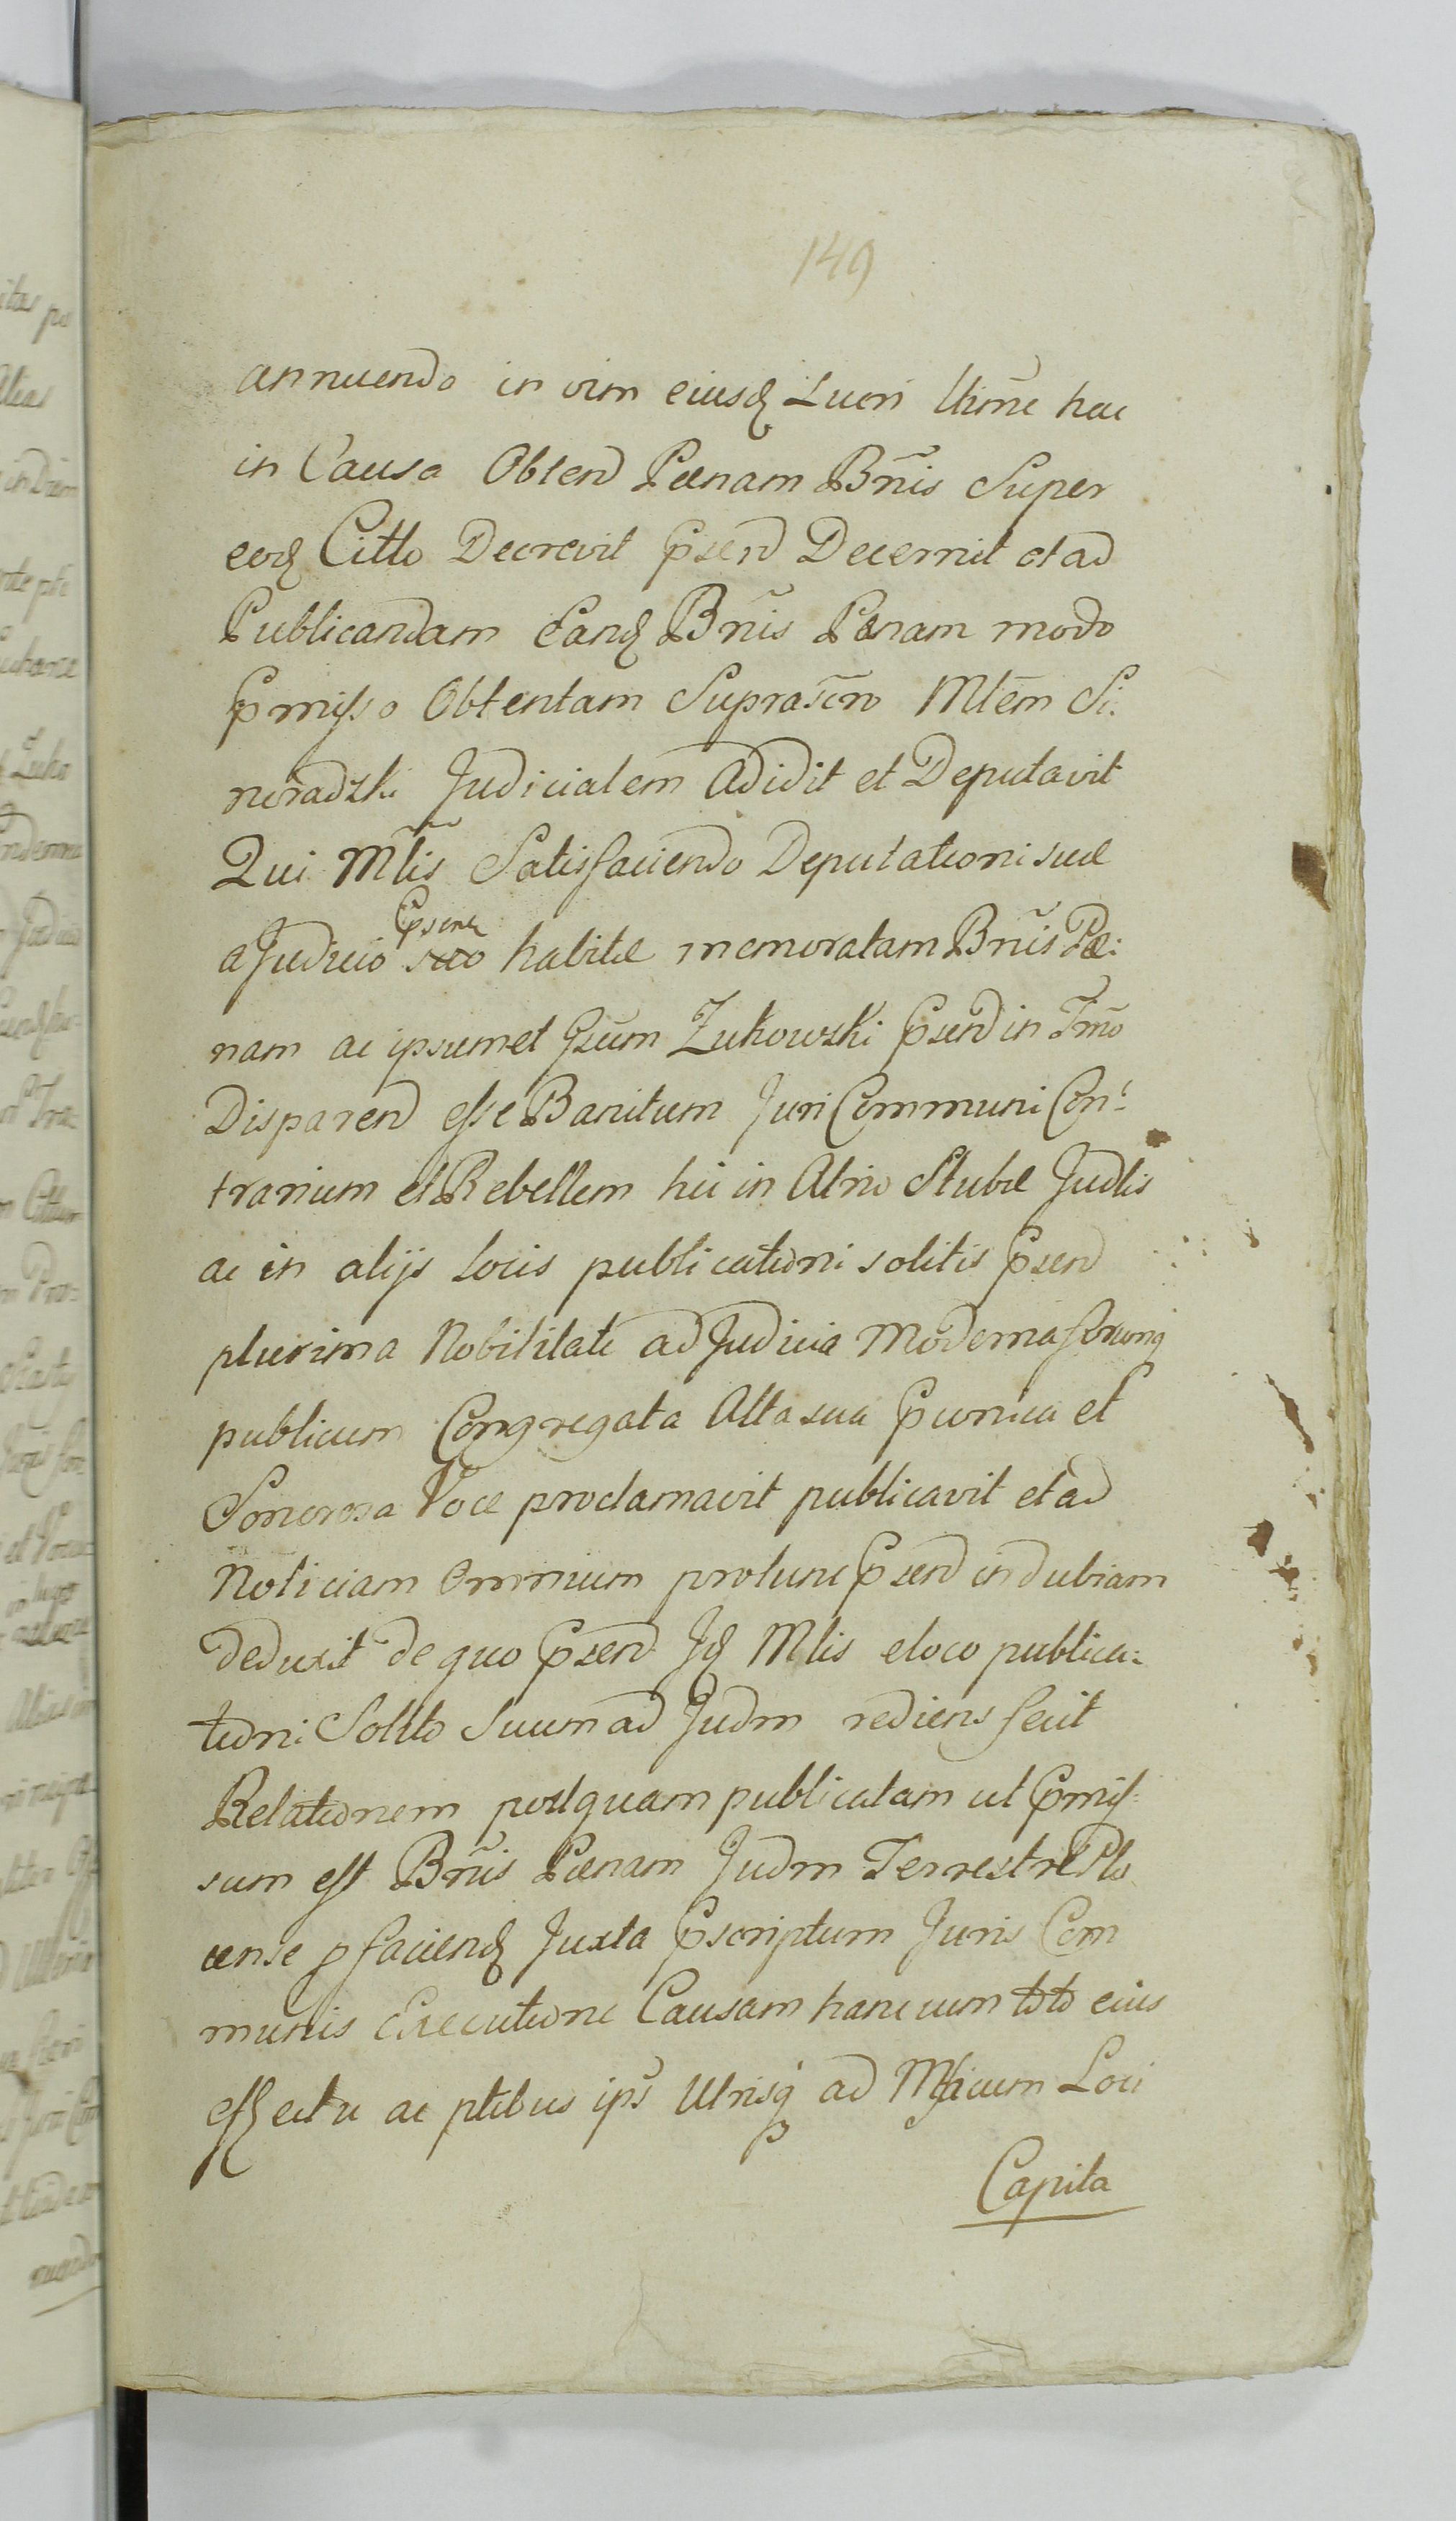 149
annuendo in vim eiusd Lucri Ultimē hac
in Causa Obtend Pœnam Bn̄is Super
eod Citto Decrevit Psend Decernit et ad
Publicandam Eand Bn̄is Pœnam modo
Pmisso Obtentam Suprascrō Mltēm Si:
noradzki Judicialem Adidit et Deputavit
Qui Mltis Satisfaciendo Deputationi suæ
a Judicio Psenti suo habitæ memoratam Bn̄is Pœ:
nam ac ipsumet Gsum Zukowski Psend in Tm̄o
Disparend esse Banitum Juri Communi Con:
trarium et Rebellem hic in Atrio Stubæ Judlis
ac in alijs Locis publicationi solitis Psend
plurima Nobilitate ad Judicia Moderna forumq
publicum Congregata Alta sua Punica et
Sonorosa Voce proclamavit publicavit et ad
Noticiam Omnium protunc Psend indubiam
deduxit de quo Psend Jd Mlis e loco publica:
tioni Solito Suum ad Judm rediens fecit
Relationem postquam publicatam ut Pmis:
sum est Bn̄is Pœnam Judm Terrestre Plo
cense p faciend Juxta Pscriptum Juris Com
munis Executione Causam hanc cum toto eius
effectu ac ptibus ips Utrisq ad Mficum Loci
Capita